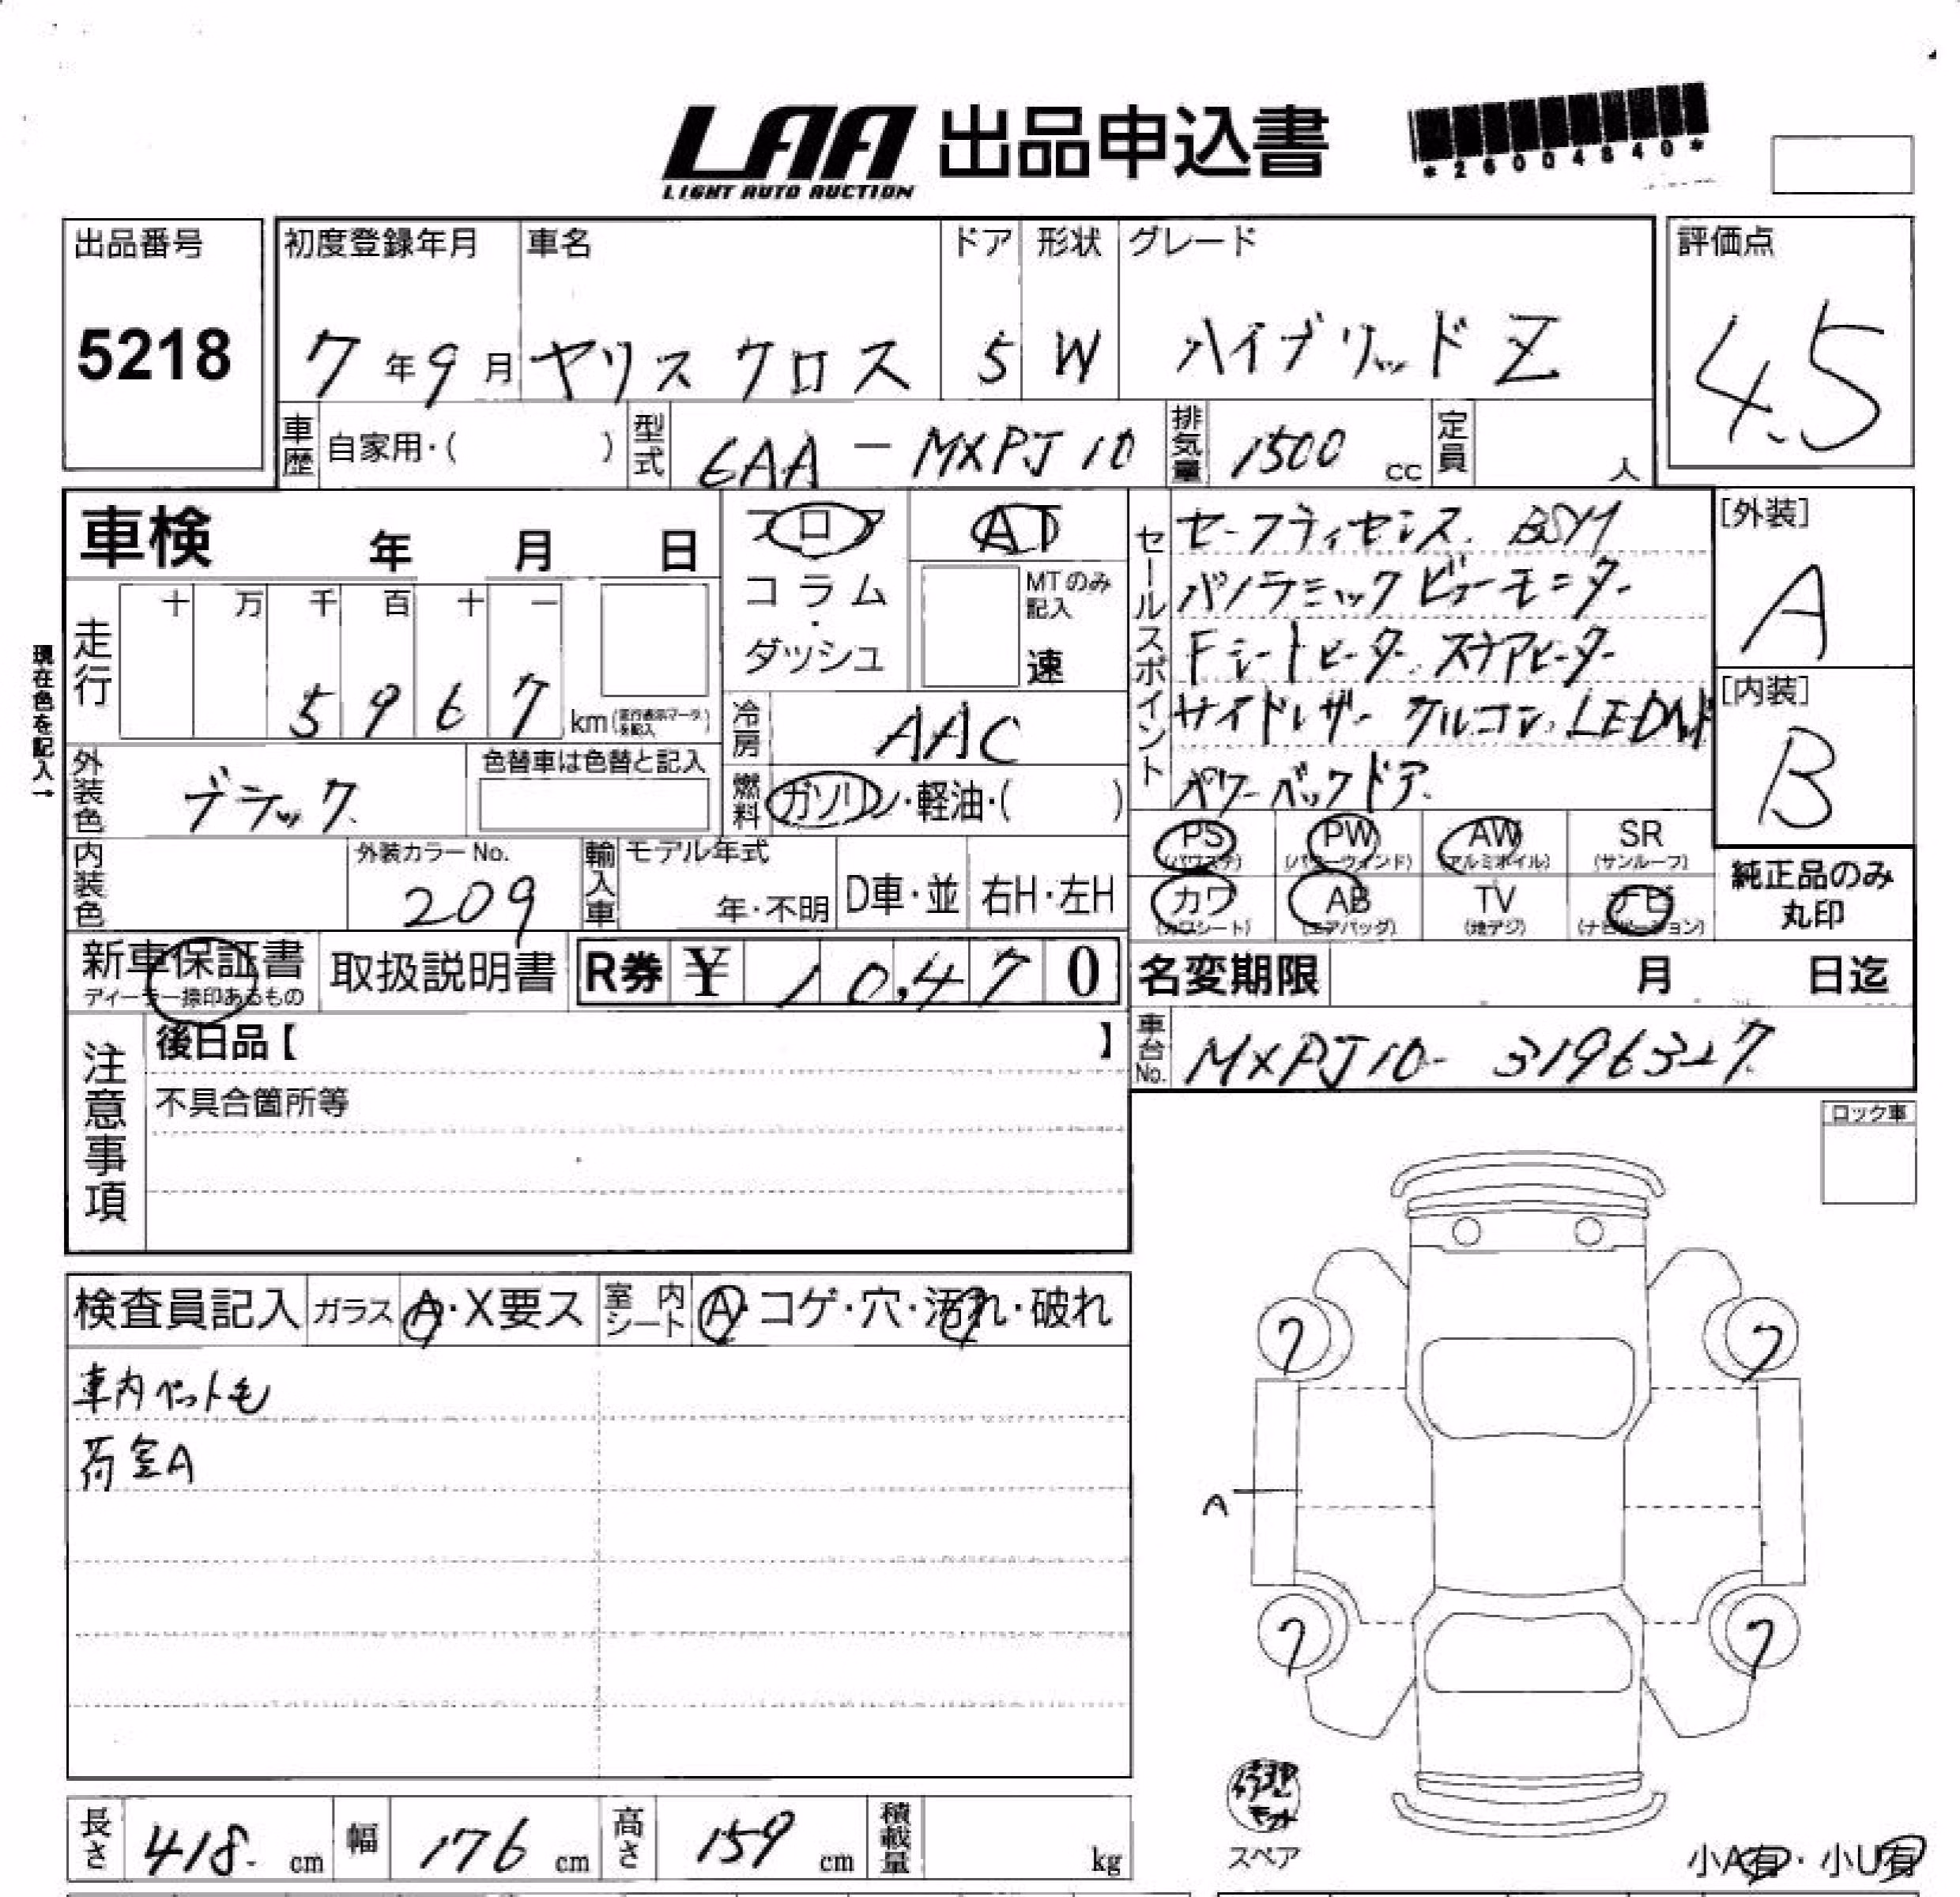 LAA 出品申込書
LIGHT AUTO AUCTION
*26004840*
出品番号
5218
初度登録年月 車名 ドア 形状 グレード
7年9月 ヤリス クロス 5 W ハイブリッド Z
評価点
4.5
車歴 自家用・( ) 型式 6AA-MXPJ10 排気量 1500 cc 定員 人
車検 年 月 日
フロア
コラム
・
ダッシュ
AT
MTのみ
記入
速
現在色を記入→
走行 十 万 千 百 十 一
5 9 6 7 km(走行表示マークを記入)
冷房 AAC
燃料 ガソリン・軽油・( )
外装色 ブラック 色替車は色替と記入
内装色 外装カラーNo. 209
輸入車 モデル年式 年・不明 D車・並 右H・左H
セールスポイント
セーフティセンス. BSM
パノラミックビューモニター
Fシートヒーター ステアヒーター
サイドレザー クルコン LED
パワーバックドア
[外装]
A
[内装]
B
PS (パワステ) PW (パワーウィンド) AW (アルミホイル) SR (サンルーフ)
カワ (カワシート) AB (エアバッグ) TV (地デジ) ナビ (ナビゲーション)
純正品のみ
丸印
新車保証書 取扱説明書 R券 ¥ 10,470
ディーラー捺印あるもの
名変期限 月 日迄
車台No. MXPJ10-3196327
注意事項
後日品【 】
不具合箇所等
ロック車
検査員記入 ガラス A・X要ス 室内シート A・コゲ・穴・汚れ・破れ
車内ペット毛
荷室A
7 7
A
7 7
スペア
小A有・小U有
長さ 418 cm 幅 176 cm 高さ 159 cm 積載量 kg